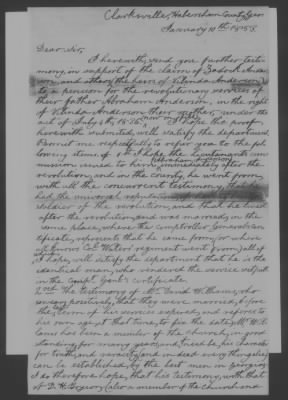 Clarksville, Habersham County, Geo
January 10th 1853
Dear Sir,
I herewith send you further testi-
mony, in support of the claim of Zadock Ander-
son and others, the heirs of Delinda Anderson,
to a pension for the revolutionary services of
their father Abraham Anderson, in the right
of Delinda Anderson their mother under the
act of July 4th 1836. I hope the proof,
herewith submitted, will satisfy the department
Permit me respectfully to refer you to the fol-
lowing items of it.
mission issued to him, Abraham Anderson, immediately after the
revolution, and in the county, he went from,
with all the concurrent testimony, that he
had the universal reputation of having been a
soldier of the revolution, and that he lived
after the revolution, and was married, in the
same place, where the comptroller General's cer-
tificate, represents that he came from, or where
Col. regiment went from, all of
I hope, will satisfy the department that he is the
identical man, who rendered the service set forth
in the Compt Genl's certificate.
2nd The testimony of Mr David Williams, who
swears positively, that they were married, before
the term of his services expired, and referes to
his own age at that time, to fix the date. Mr Wil-
liams has been a member of the church, in good
standing, for many years, and tried be, his character
for truth and veracity, and indeed every thing else,
can be established by the best men in Georgia,
I do therefore hope, that his testimony, with that
of D. H. Gregory (also a member of the church and